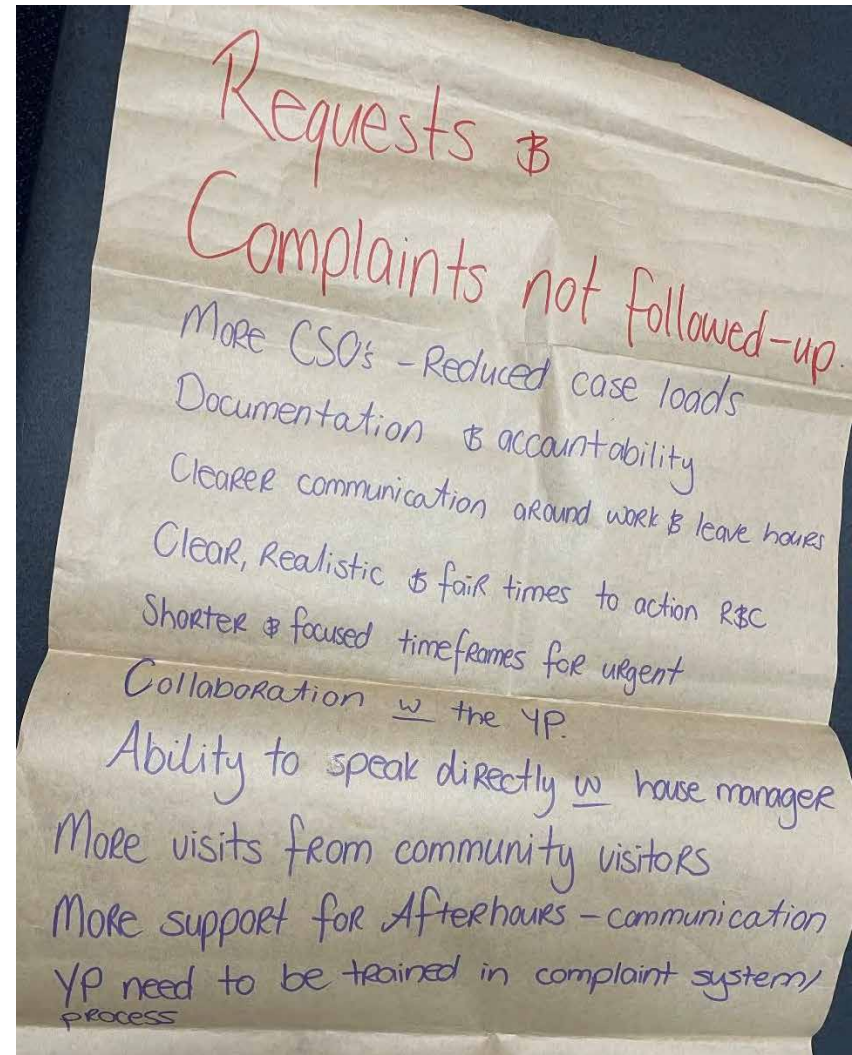 Requests &
Complaints not followed-up.
More CSO's - Reduced case loads
Documentation & accountability
Clearer communication around work & leave hours
Clear, Realistic & fair times to action R&C
Shorter & focused timeframes for urgent
Collaboration w the YP.
Ability to speak directly w house manager
More visits from community visitors
More support for Afterhours - communication
YP need to be trained in complaint system/
process